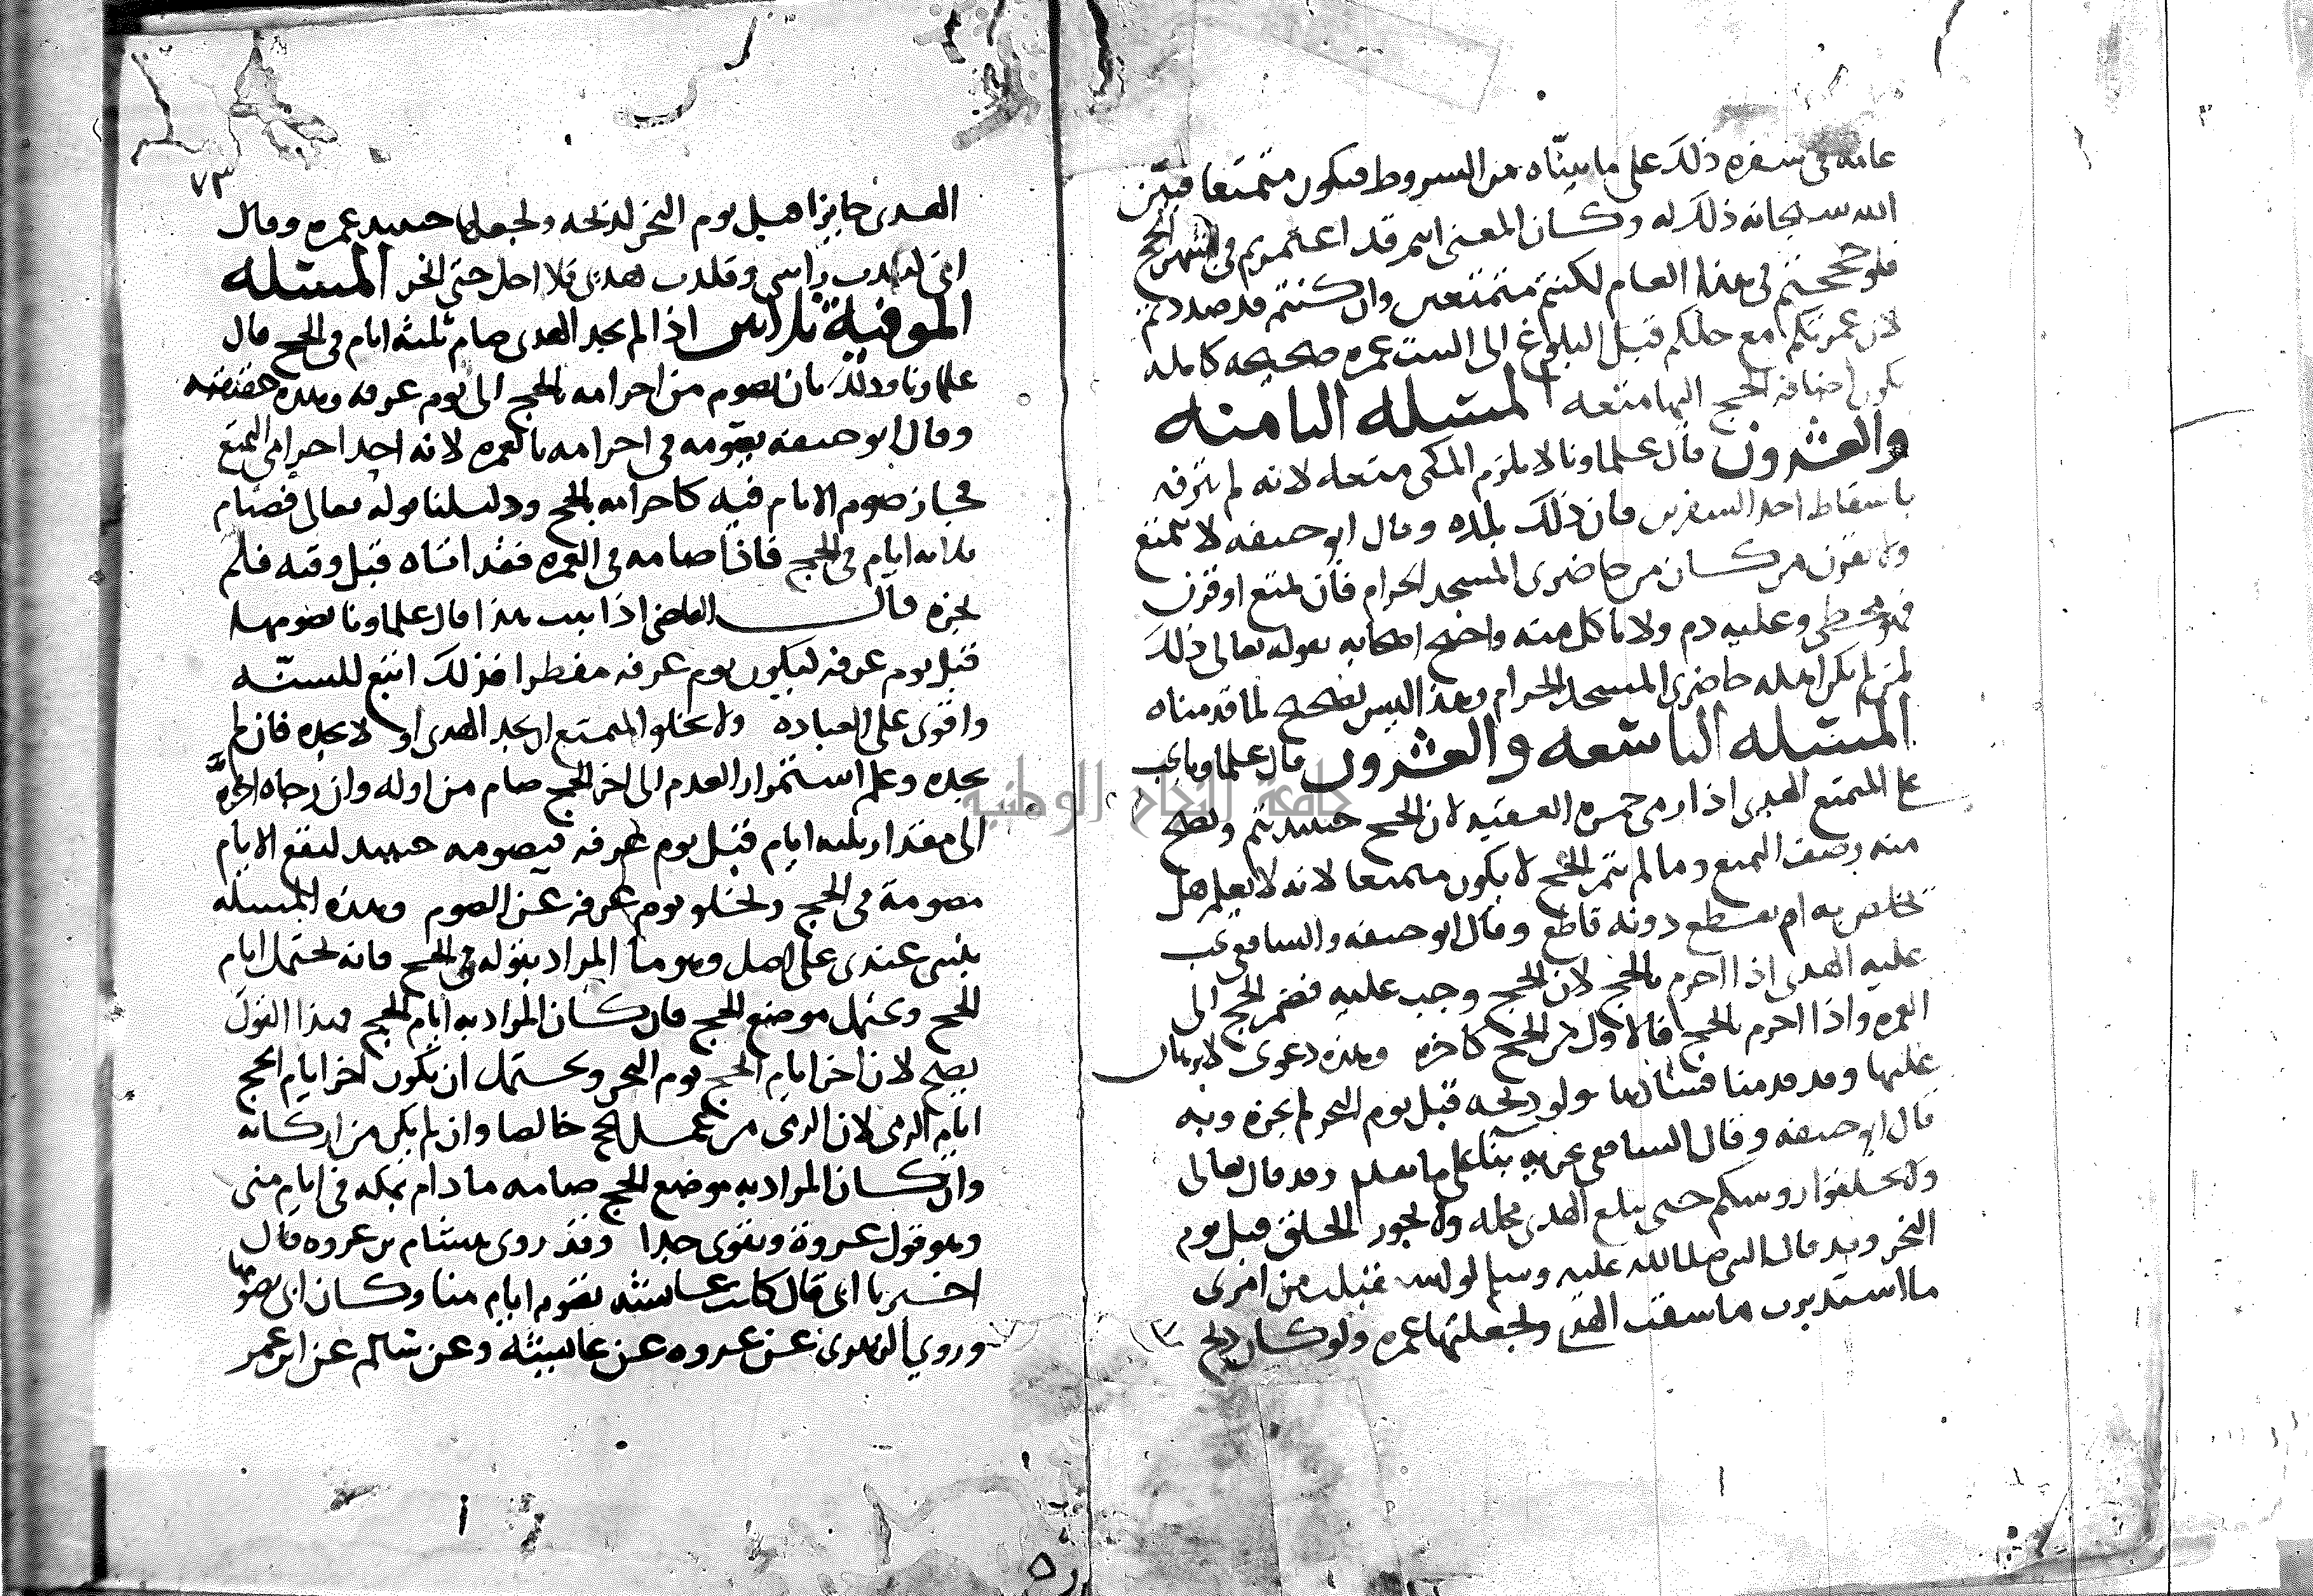 عامه في سفره ذلك على ما بيناه من الشروط فيكون متمتعا فبين
الله سبحانه ذلك له وكان المعنى انهم قد اعتمرتم في اشهر الحج
فلو حججتم في هذا العام لكنتم متمتعين وان كنتم قد صددتم
لان عمرتكم مع حلكم قبل البلوغ الى البيت عمره صحيحه كامله
تكون اضافه الحج اليها متعه المسئله الثامنه
والعشرون قال علماونا لا يلزم المكي متعه لانه لم يترفه
باسقاط احد السفرين فان ذلك بلده وقال ابو حنيفه لا يتمتع
ولا يقرن من كان من حاضري المسجد الحرام فان تمتع او قرن
فهو مخطي وعليه دم ولا ياكل منه واحتج اصحابه بقوله تعالى ذلك
لمن لم يكن اهله حاضري المسجد الحرام وهذا ليس بصحيح لما قدمناه
المسئله التاسعه والعشرون قال علماونا يجب
على المتمتع الهدي اذا رمى جمرة العقبه لان الحج حينيذ يتم ويصح
منه وصف التمتع وما لم يتم الحج لا يكون متمتعا لانه لا يعلم هل
تخلص به ام يقطع دونه قاطع وقال ابو حنيفه والشافعي يجب
عليه الهدي اذا احرم بالحج لان الحج وجب عليه فضم الحج الى
العمره واذا احرم بالحج فالاول من الحج كاخره وهذه دعوى لا برهان
عليها وقد قدمنا فسادها ولو ذبحه قبل يوم النحر لم يجزه وبه
قال ابو حنيفه وقال الشافعي يجزيه بنا على ما تقدم وقد قال تعالى
ولا تحلقوا روسكم حتى يبلغ الهدي محله ولا يجوز الحلق قبل يوم
النحر وقد قال النبي صلى الله عليه وسلم لو استقبلت من امري
ما استدبرت ما سقت الهدي ولجعلتها عمره ولو كان ذبح
٧٣
الهدي جايزا قبل يوم النحر لذبحه ولجعلها حينيذ عمره وقال
اني لبدت راسي وقلدت هديي فلا احل حتى انحر المسئله
الموفية ثلاثين اذا لم يجد الهدي صام ثلثه ايام في الحج قال
علماونا وذلك بان يصوم من احرامه بالحج الى يوم عرفه وهذه حقيقته
وقال ابو حنيفه يصومه في احرامه بالعمره لانه احد احرامي التمتع
فجاز صوم الايام فيه كاحرامه بالحج ودليلنا قوله تعالى فصيام
ثلاثه ايام في الحج فاذا صامه في العمره فقد اتاه قبل وقته فلم
يجزه قال القاضي اذا ثبت هذا قال علماونا يصومها
قبل يوم عرفه ليكون يوم عرفه مفطرا فذلك اتبع للسنه
واقوى على العباده ولا يخلو المتمتع ان يجد الهدي او لا يجده فان لم
يجده وعلم استمرار العدم الى اخر الحج صام من اوله وان رجاه اخره
الى مقدار ثلثه ايام قبل يوم عرفه فيصومه حينيذ ليقع الايام
مصومة في الحج ويخلو يوم عرفه عن الصوم وهذه المسئله
ينبني عندي على اصل وهو ما المراد بقوله في الحج فانه يحتمل ايام
الحج ويحتمل موضع الحج فان كان المراد به ايام الحج فهذا القول
يصح لان اخر ايام الحج يوم النحر ويحتمل ان يكون اخر ايام الحج
ايام الرمي لان الرمي من عمل الحج خالصا وان لم يكن من اركانه
وان كان المراد به موضع الحج صامه ما دام بمكه في ايام منى
وهو قول عروة ويقوى جدا وقد روى هشام بن عروه قال
اخبرنا ابي قال كانت عايشه تصوم ايام منا وكان ابي يصومها
وروي الزهري عن عروه عن عايشه وعن سالم عن ابن عمر
جامعة النجاح الوطنية